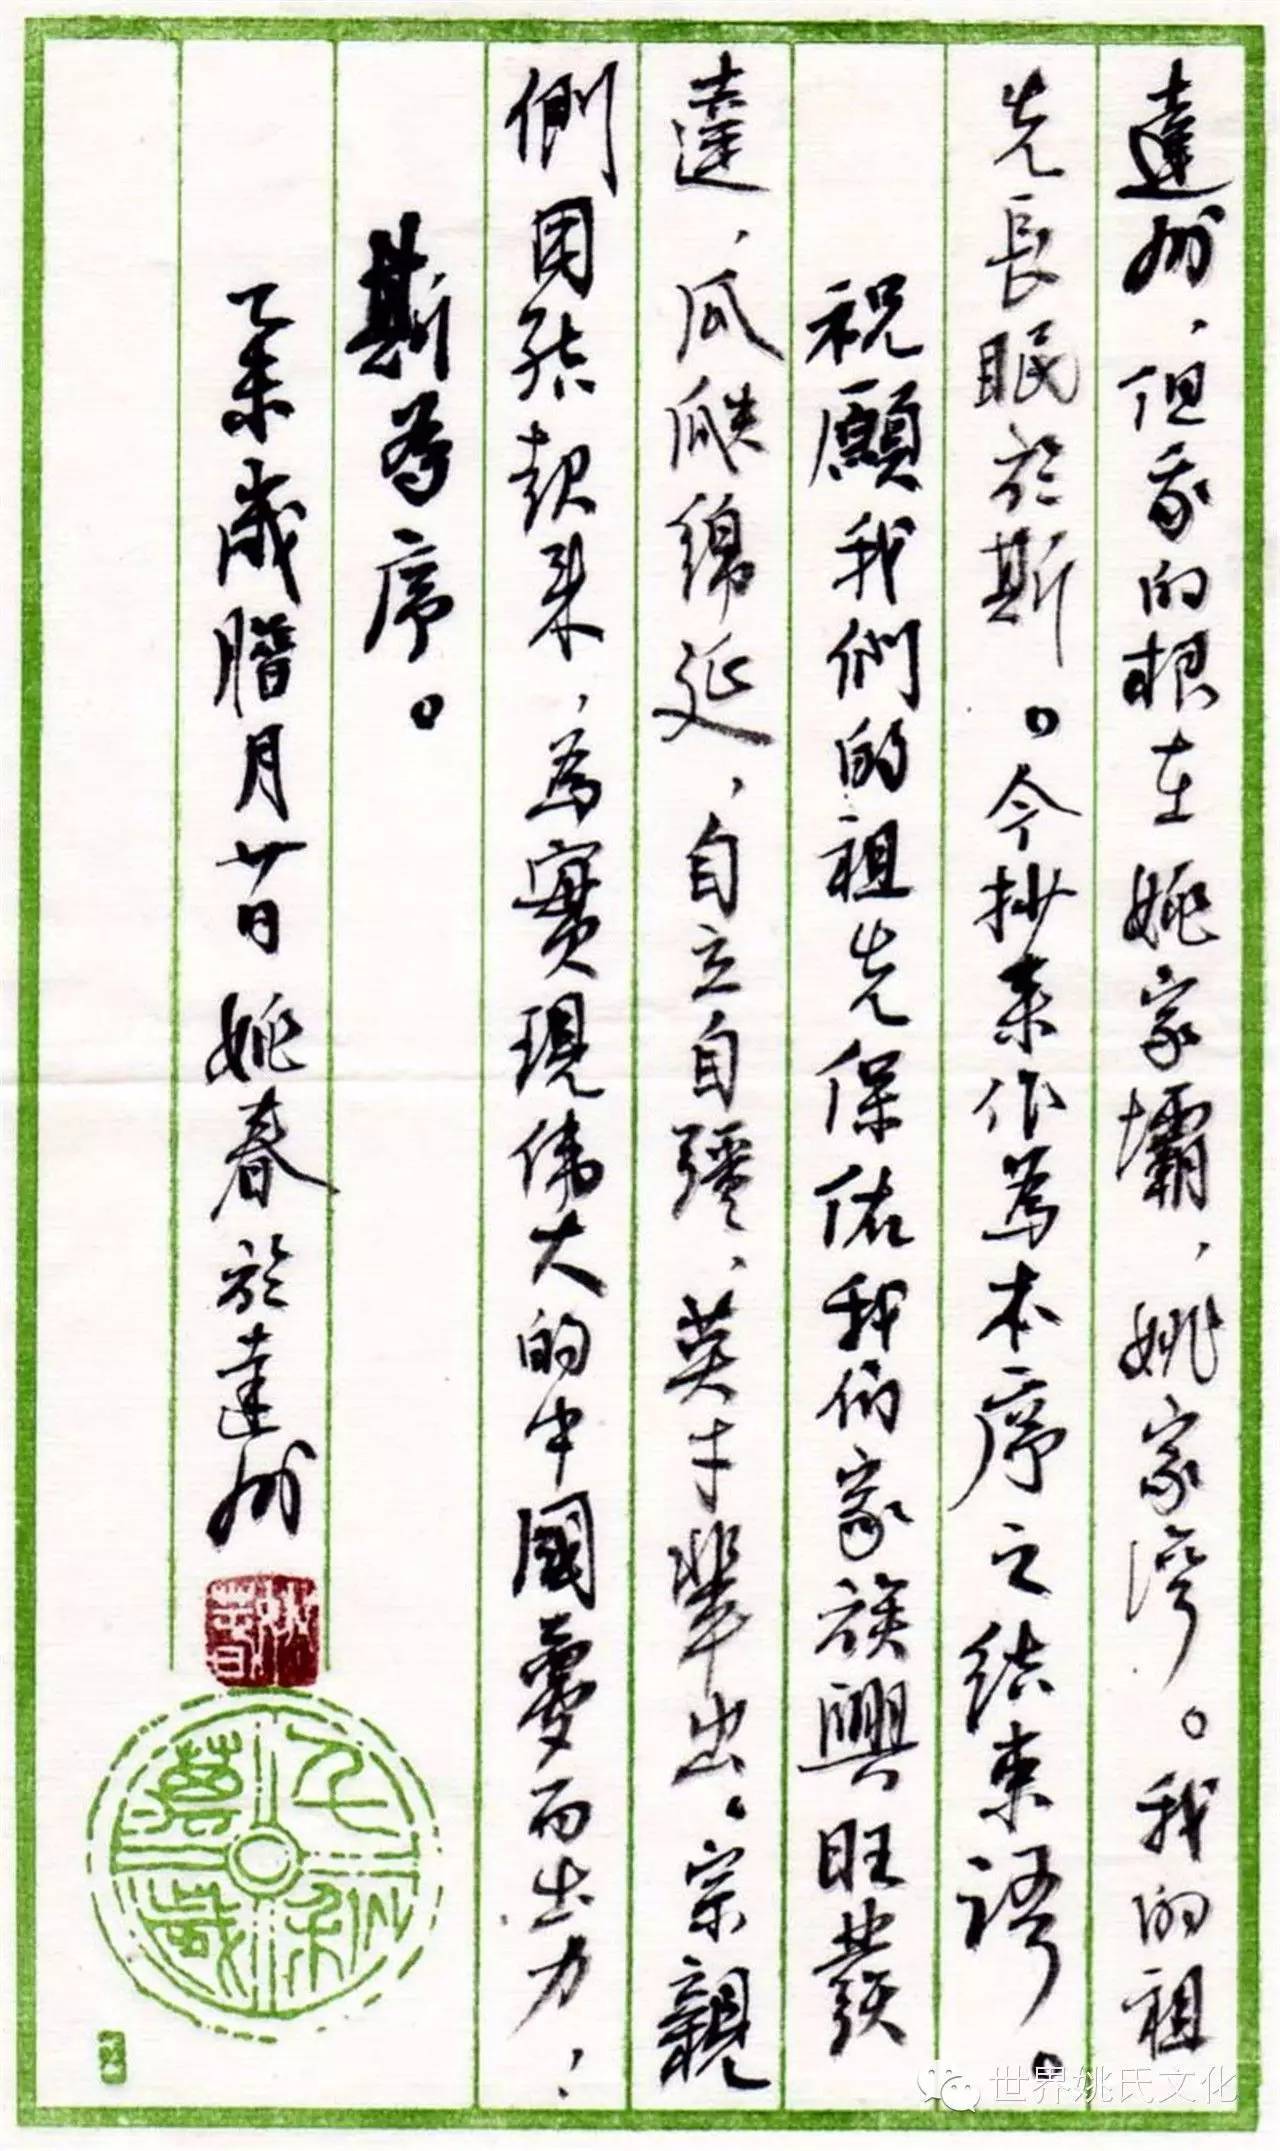 達州，但我的根在姚家壩，姚家灣。我的祖
先長眠於斯。今抄來作為本序之結束語。
祝願我們的祖先保佑我們家族興旺發
達，瓜瓞綿延，自立自强，英才輩出。宗親
們团结起来，為實現偉大的中國夢而出力！
斯為序。
乙未歲腊月廿日 姚春於達州
姚春
千秋萬歲
世界姚氏文化